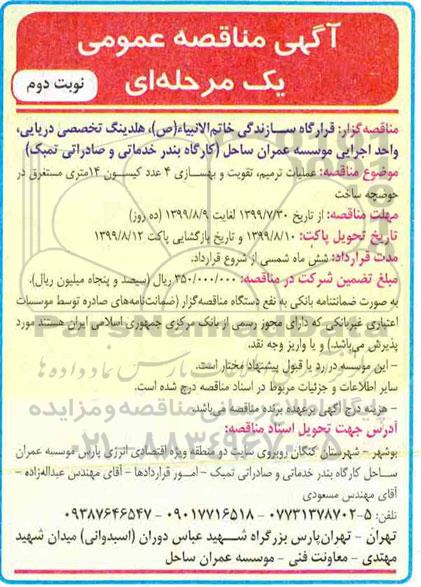 آگهی مناقصه عمومی
یک مرحله‌ای
نوبت دوم
مناقصه‌گزار: قرارگاه سـازندگی خاتم‌الانبیاء(ص)، هلدینگ تخصصی دریایی،
واحد اجرایی موسسه عمران ساحل (کارگاه بندر خدماتی و صادراتی تمبک)
موضوع مناقصه: عملیات ترمیم، تقویت و بهسـازی ۴ عدد کیسـون ۱۴متری مستغرق در
حوضچه ساخت
مهلت مناقصه: از تاریخ ۱۳۹۹/۷/۳۰ لغایت ۱۳۹۹/۸/۹ (ده روز)
تاریخ تحویل پاکت: ۱۳۹۹/۸/۱۰ و تاریخ بازگشایی پاکت ۱۳۹۹/۸/۱۲
مدت قرارداد: شش ماه شمسی از شروع قرارداد.
مبلغ تضمین شرکت در مناقصه: ۳۵۰/۰۰۰/۰۰۰ ریال (سیصد و پنجاه میلیون ریال).
به صورت ضمانتنامه بانکی به نفع دستگاه مناقصه‌گزار (ضمانت‌نامه‌های صادره توسط موسسات
اعتباری غیربانکی که دارای مجوز رسمی از بانک مرکزی جمهوری اسلامی ایران هستند مورد
پذیرش می‌باشد.) و یا واریز وجه نقد.
– این موسسه در رد یا قبول پیشنهاد مختار است.
سایر اطلاعات و جزئیات مربوط در اسناد مناقصه درج شده است.
– هزینه درج آگهی برعهده برنده مناقصه می‌باشد.
آدرس جهت تحویل اسناد مناقصه:
بوشهر – شهرستان کنگان روبروی سایت دو منطقه ویژه اقتصادی انرژی پارس موسسه عمران
ساحل کارگاه بندر خدماتی و صادراتی تمبک – امـور قراردادها – آقای مهندس عبداله‌زاده –
آقای مهندس مسعودی
تلفن: ۵-۰۷۷۳۱۳۷۸۷۰۲ – ۰۹۰۱۷۷۱۶۵۱۸ – ۰۹۳۸۷۶۴۶۵۴۷
تهران – تهران‌پارس بزرگراه شـهید عباس دوران (اسبدوانی) میدان شهید
مهتدی – معاونت فنی – موسسه عمران ساحل
ParsNamadData
پایگاه اطلاع رسانی مناقصه و مزایده
۰۲۱-۸۸۳۴۹۶۷۰-۵